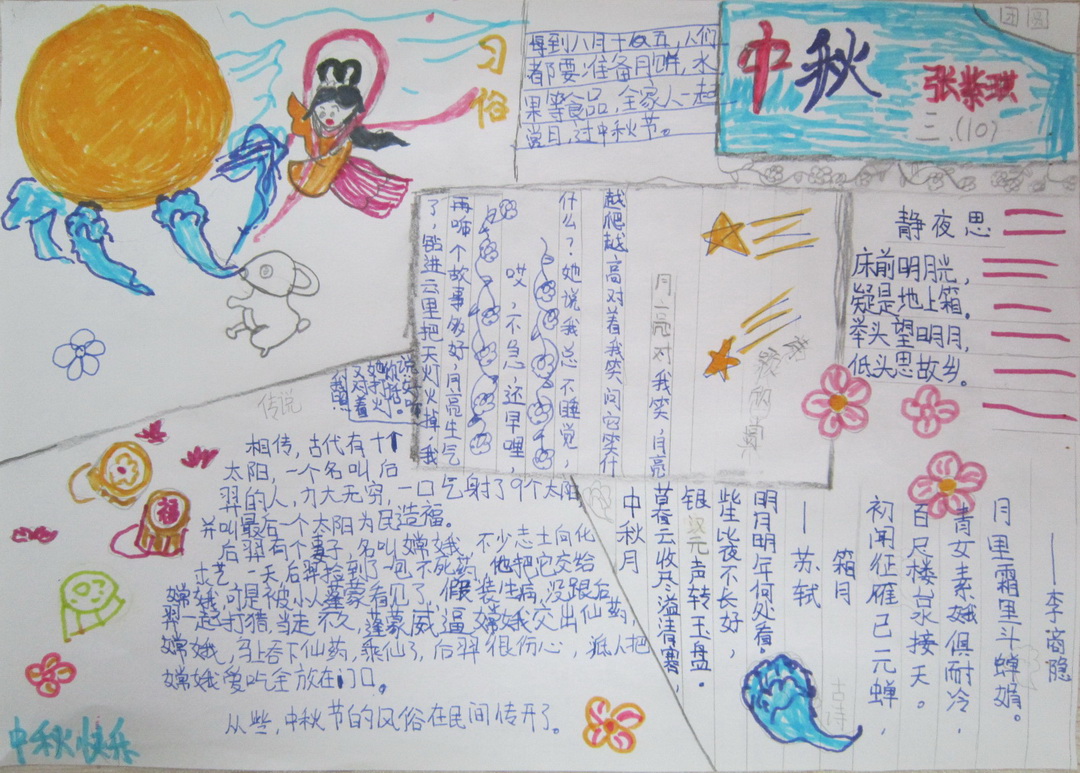 团圆
中秋
张紫琪
三.(10)
习俗
每到八月十五,人们
都要准备月饼,水
果等食品,全家人一起
赏月,过中秋节。
静夜思
床前明月光,
疑是地上箱。
举头望明月,
低头思故乡。
月亮对我笑,月亮
越爬越高对着我笑问它笑什
什么?她说我总不睡觉,
哎,不急,还早哩,
再听个故事多好,月亮生气
了,钻进云里把天灯火掉,我
传说
相传,古代有十个
太阳,一个名叫后
羿的人,力大无穷,一口气射了9个太阳
并叫最后一个太阳为民造福。
后羿有个妻子,名叫嫦娥
不少志士向他
一天后羿捡到了一包不死药,他把它交给
嫦娥,可是被小人蓬蒙看见了,假装生病,没跟后
羿一起打猎,当走不久,蓬蒙威逼嫦娥交出仙药,
嫦娥,马上吞下仙药,乘仙了,后羿很伤心,派人把
嫦娥爱吃全放在门口。
从些,中秋节的风俗在民间传开了。
中秋快乐
福
中秋月
暮云收尽溢清寒,
银汉元声转玉盘。
些生比夜不长好,
明月明年何处看。
——苏轼
箱月
初闻征雁己元蝉,
百尺楼台水接天。
青女素娥俱耐冷,
月里霜里斗蝉娟。
——李商隐
古诗